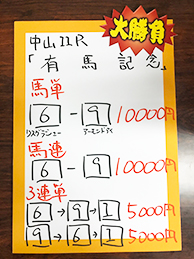 大勝負
中山11R
「有馬記念」
馬単
6 - 9 10000円
リスグラシュー アーモンドアイ
馬連
6 - 9 10000円
3連単
6 → 9 → 1 5000円
9 → 6 → 1 5000円